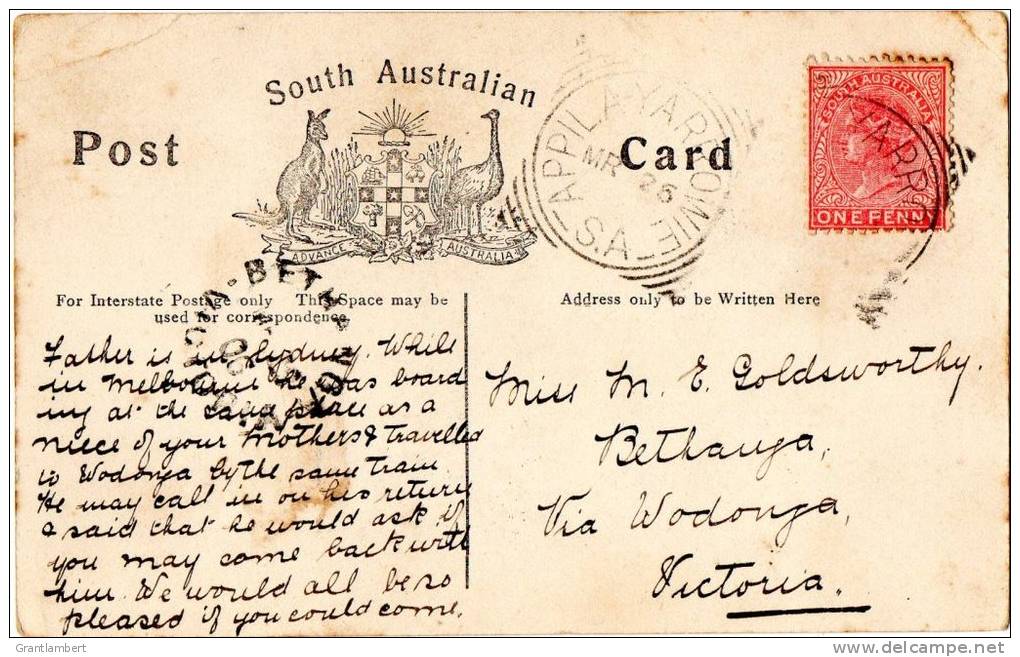 South Australian
Post Card
ADVANCE AUSTRALIA
APPILA-YARROWIE
MR 26
S.A.
SOUTH AUSTRALIA
ONE PENNY
YARR
For Interstate Postage only This Space may be
used for correspondence
Address only to be Written Here
Father is in Sydney. While
in Melbourne he was board
ing at the same place as a
niece of your Mothers & travelled
to Wodonga by the same train
He may call in on his return
& said that he would ask if
you may come back with
him. We would all be so
pleased if you could come.
Miss M. E. Goldsworthy.
Bethanga,
Via Wodonga,
Victoria.
Grantlambert
delcampe.net